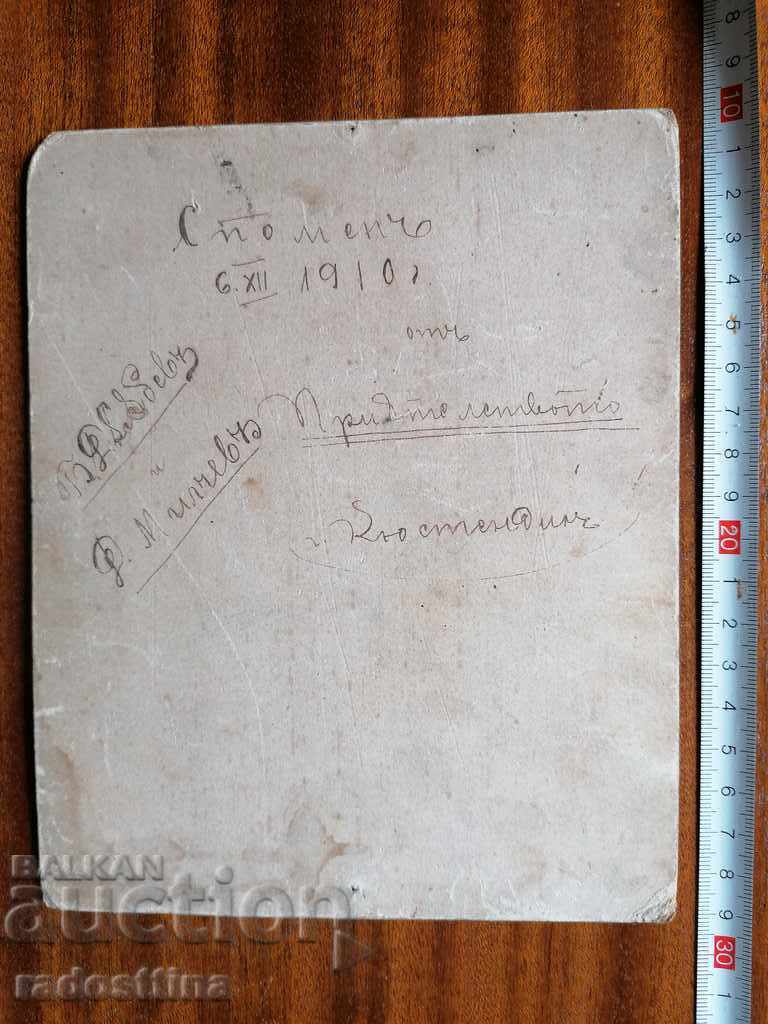 Споменъ
6.XII 1910 г.
отъ
Приятелството
г. Кюстендилъ
и
Ф. Милчевъ
BALKAN
auction
radosttina
8 9 10 1 2 3 4 5 6 7 8 9 20 1 2 3 4 5 6 7 8 9 30